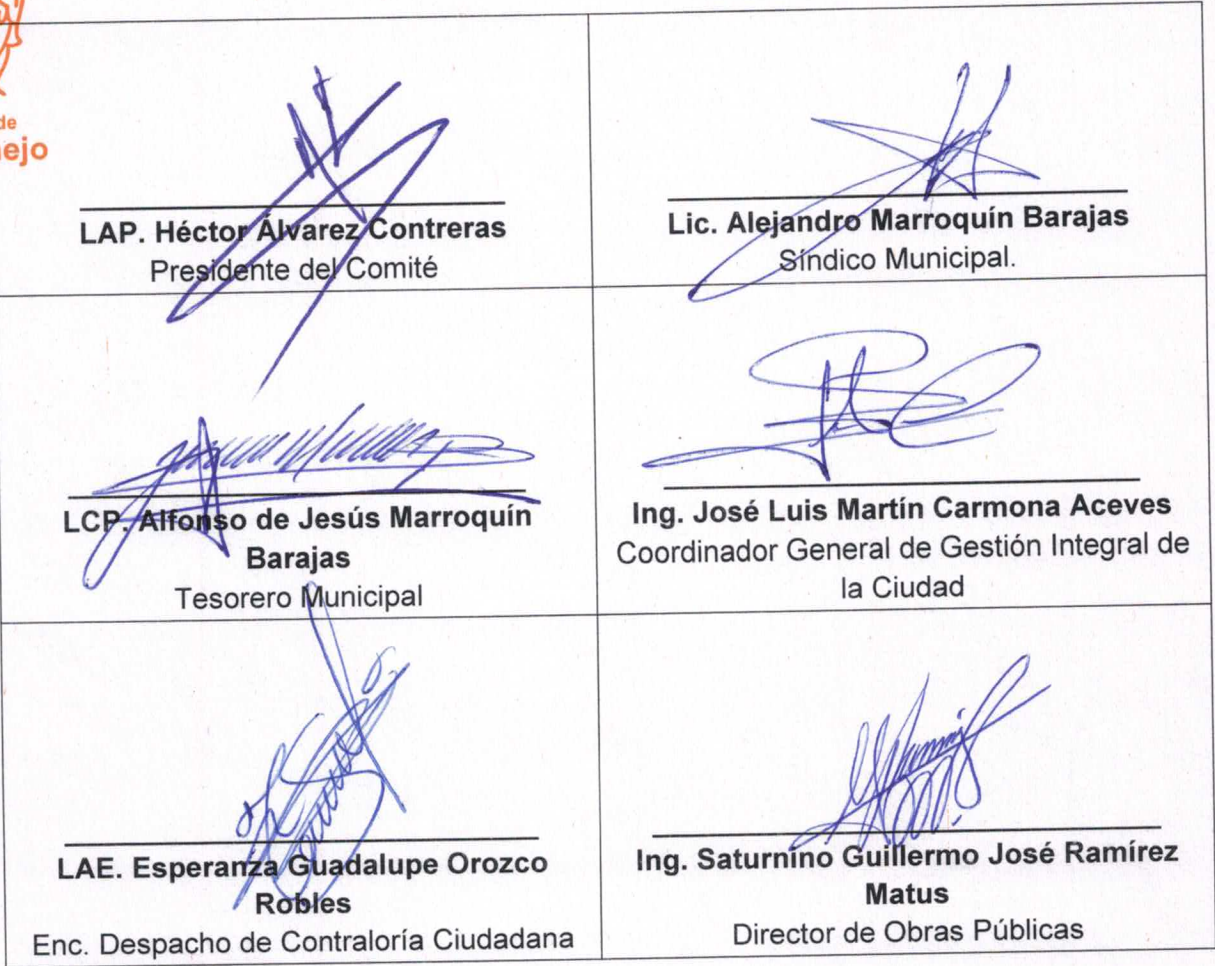 de
ejo
LAP. Héctor Álvarez Contreras
Presidente del Comité
Lic. Alejandro Marroquín Barajas
Síndico Municipal.
LCP. Alfonso de Jesús Marroquín
Barajas
Tesorero Municipal
Ing. José Luis Martín Carmona Aceves
Coordinador General de Gestión Integral de
la Ciudad
LAE. Esperanza Guadalupe Orozco
Robles
Enc. Despacho de Contraloría Ciudadana
Ing. Saturnino Guillermo José Ramírez
Matus
Director de Obras Públicas